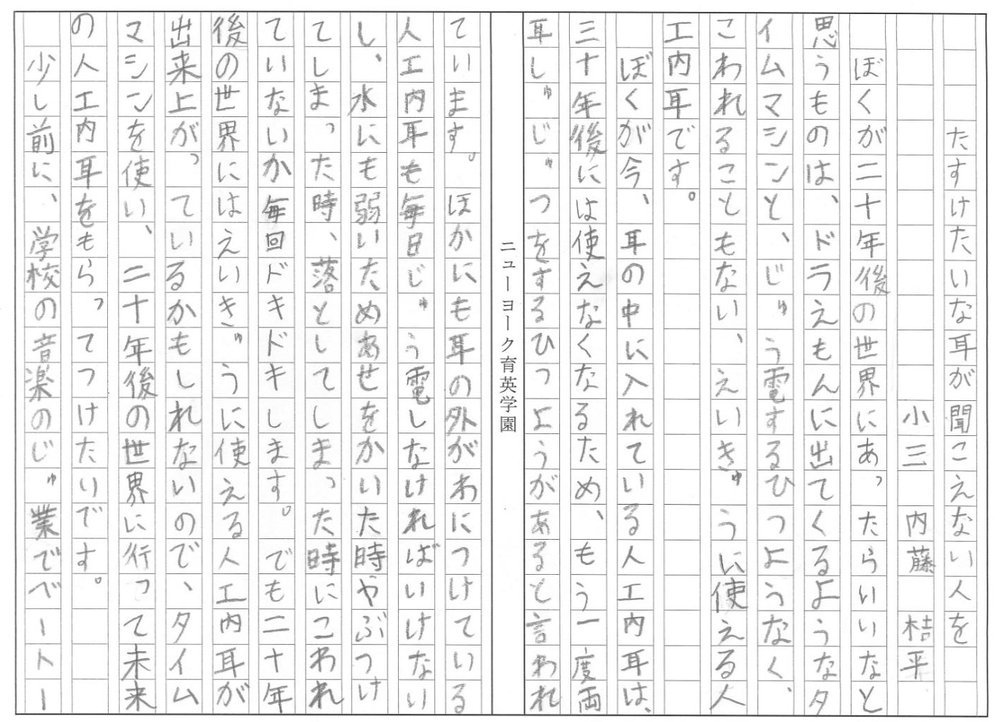 たすけたいな耳が聞こえない人を
小三 内藤 桔平
ぼくが二十年後の世界にあったらいいなと
思うものは、ドラえもんに出てくるようなタ
イムマシンと、じゅう電するひつようなく、
こわれることもない、えいきゅうに使える人
工内耳です。
ぼくが今、耳の中に入れている人工内耳は、
三十年後には使えなくなるため、もう一度両
耳しゅじゅつをするひつようがあると言われ
ニューヨーク育英学園
ています。ほかにも耳の外がわにつけている
人工内耳も毎日じゅう電しなければいけない
し、水にも弱いためあせをかいた時やぶつけ
てしまった時、落としてしまった時にこわれ
ていないか毎回ドキドキします。でも二十年
後の世界にはえいきゅうに使える人工内耳が
出来上がっているかもしれないので、タイム
マシンを使い、二十年後の世界に行って未来
の人工内耳をもらってつけたいです。
少し前に、学校の音楽のじゅ業でベートー